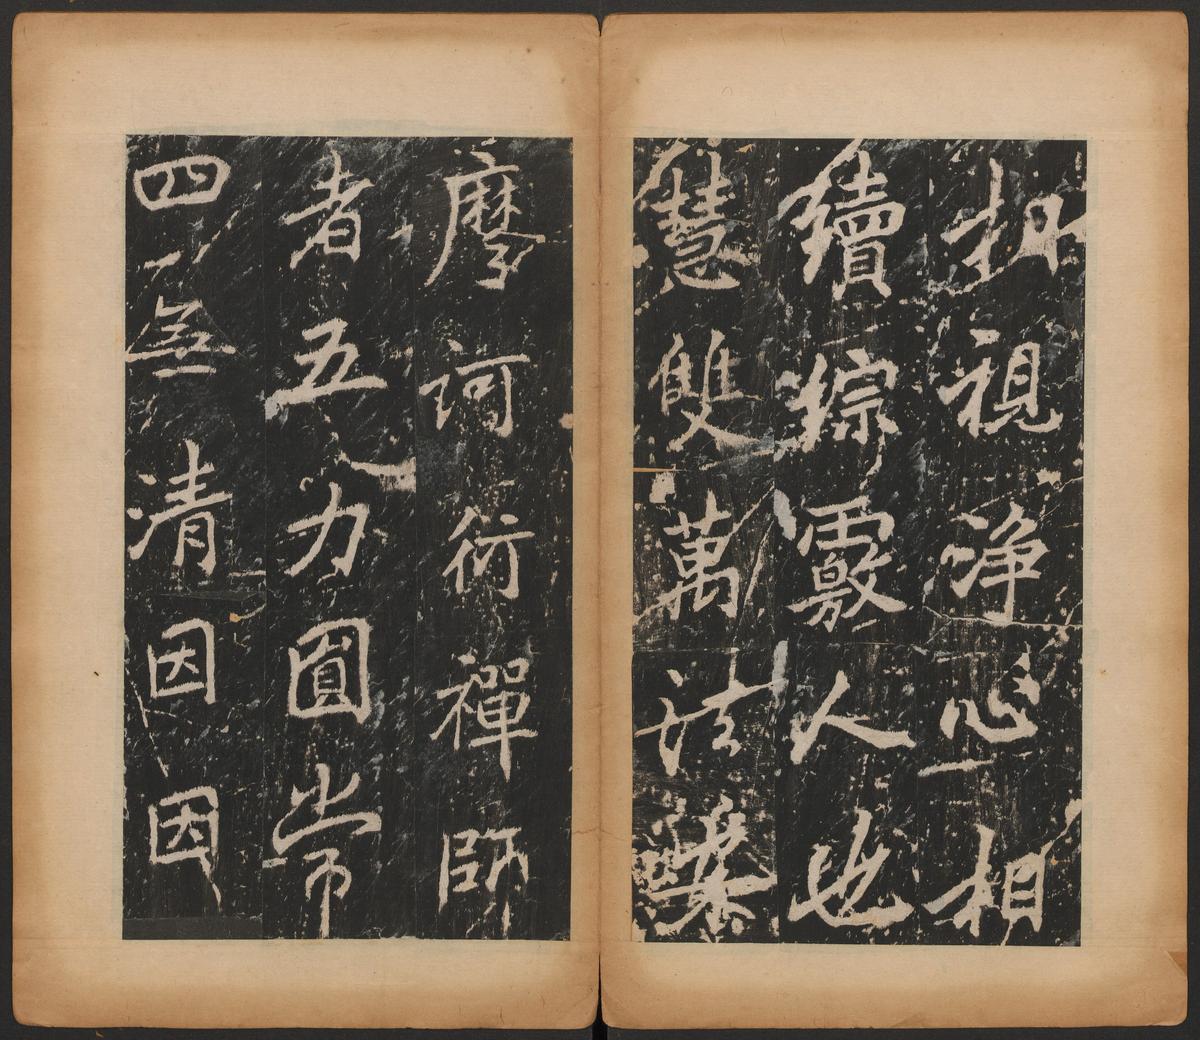 視淨心相
續綜覈人也
慧雙萬法
摩訶衍禪師
者五力圓常
四無清因因